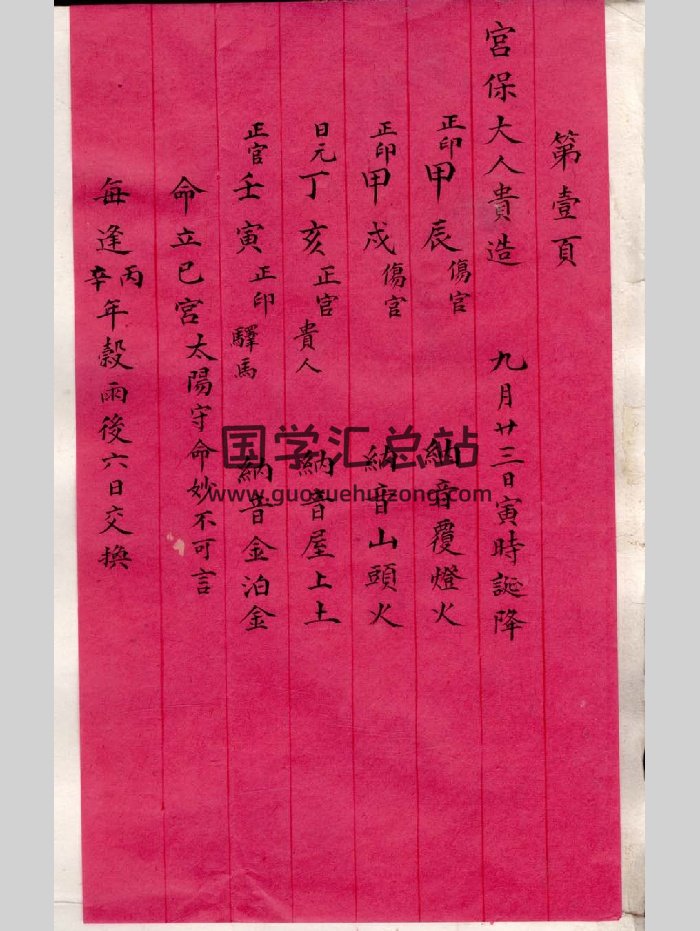 第壹頁
宮保大人貴造 九月廿三日寅時誕降
正印甲辰傷官 納音覆燈火
正印甲戌傷官 納音山頭火
日元丁亥正官貴人 納音屋上土
正官壬寅正印驛馬 納音金泊金
命立巳宮太陽守命妙不可言
每逢丙辛年穀雨後六日交換
国学汇总站
www.guoxuehuizong.com